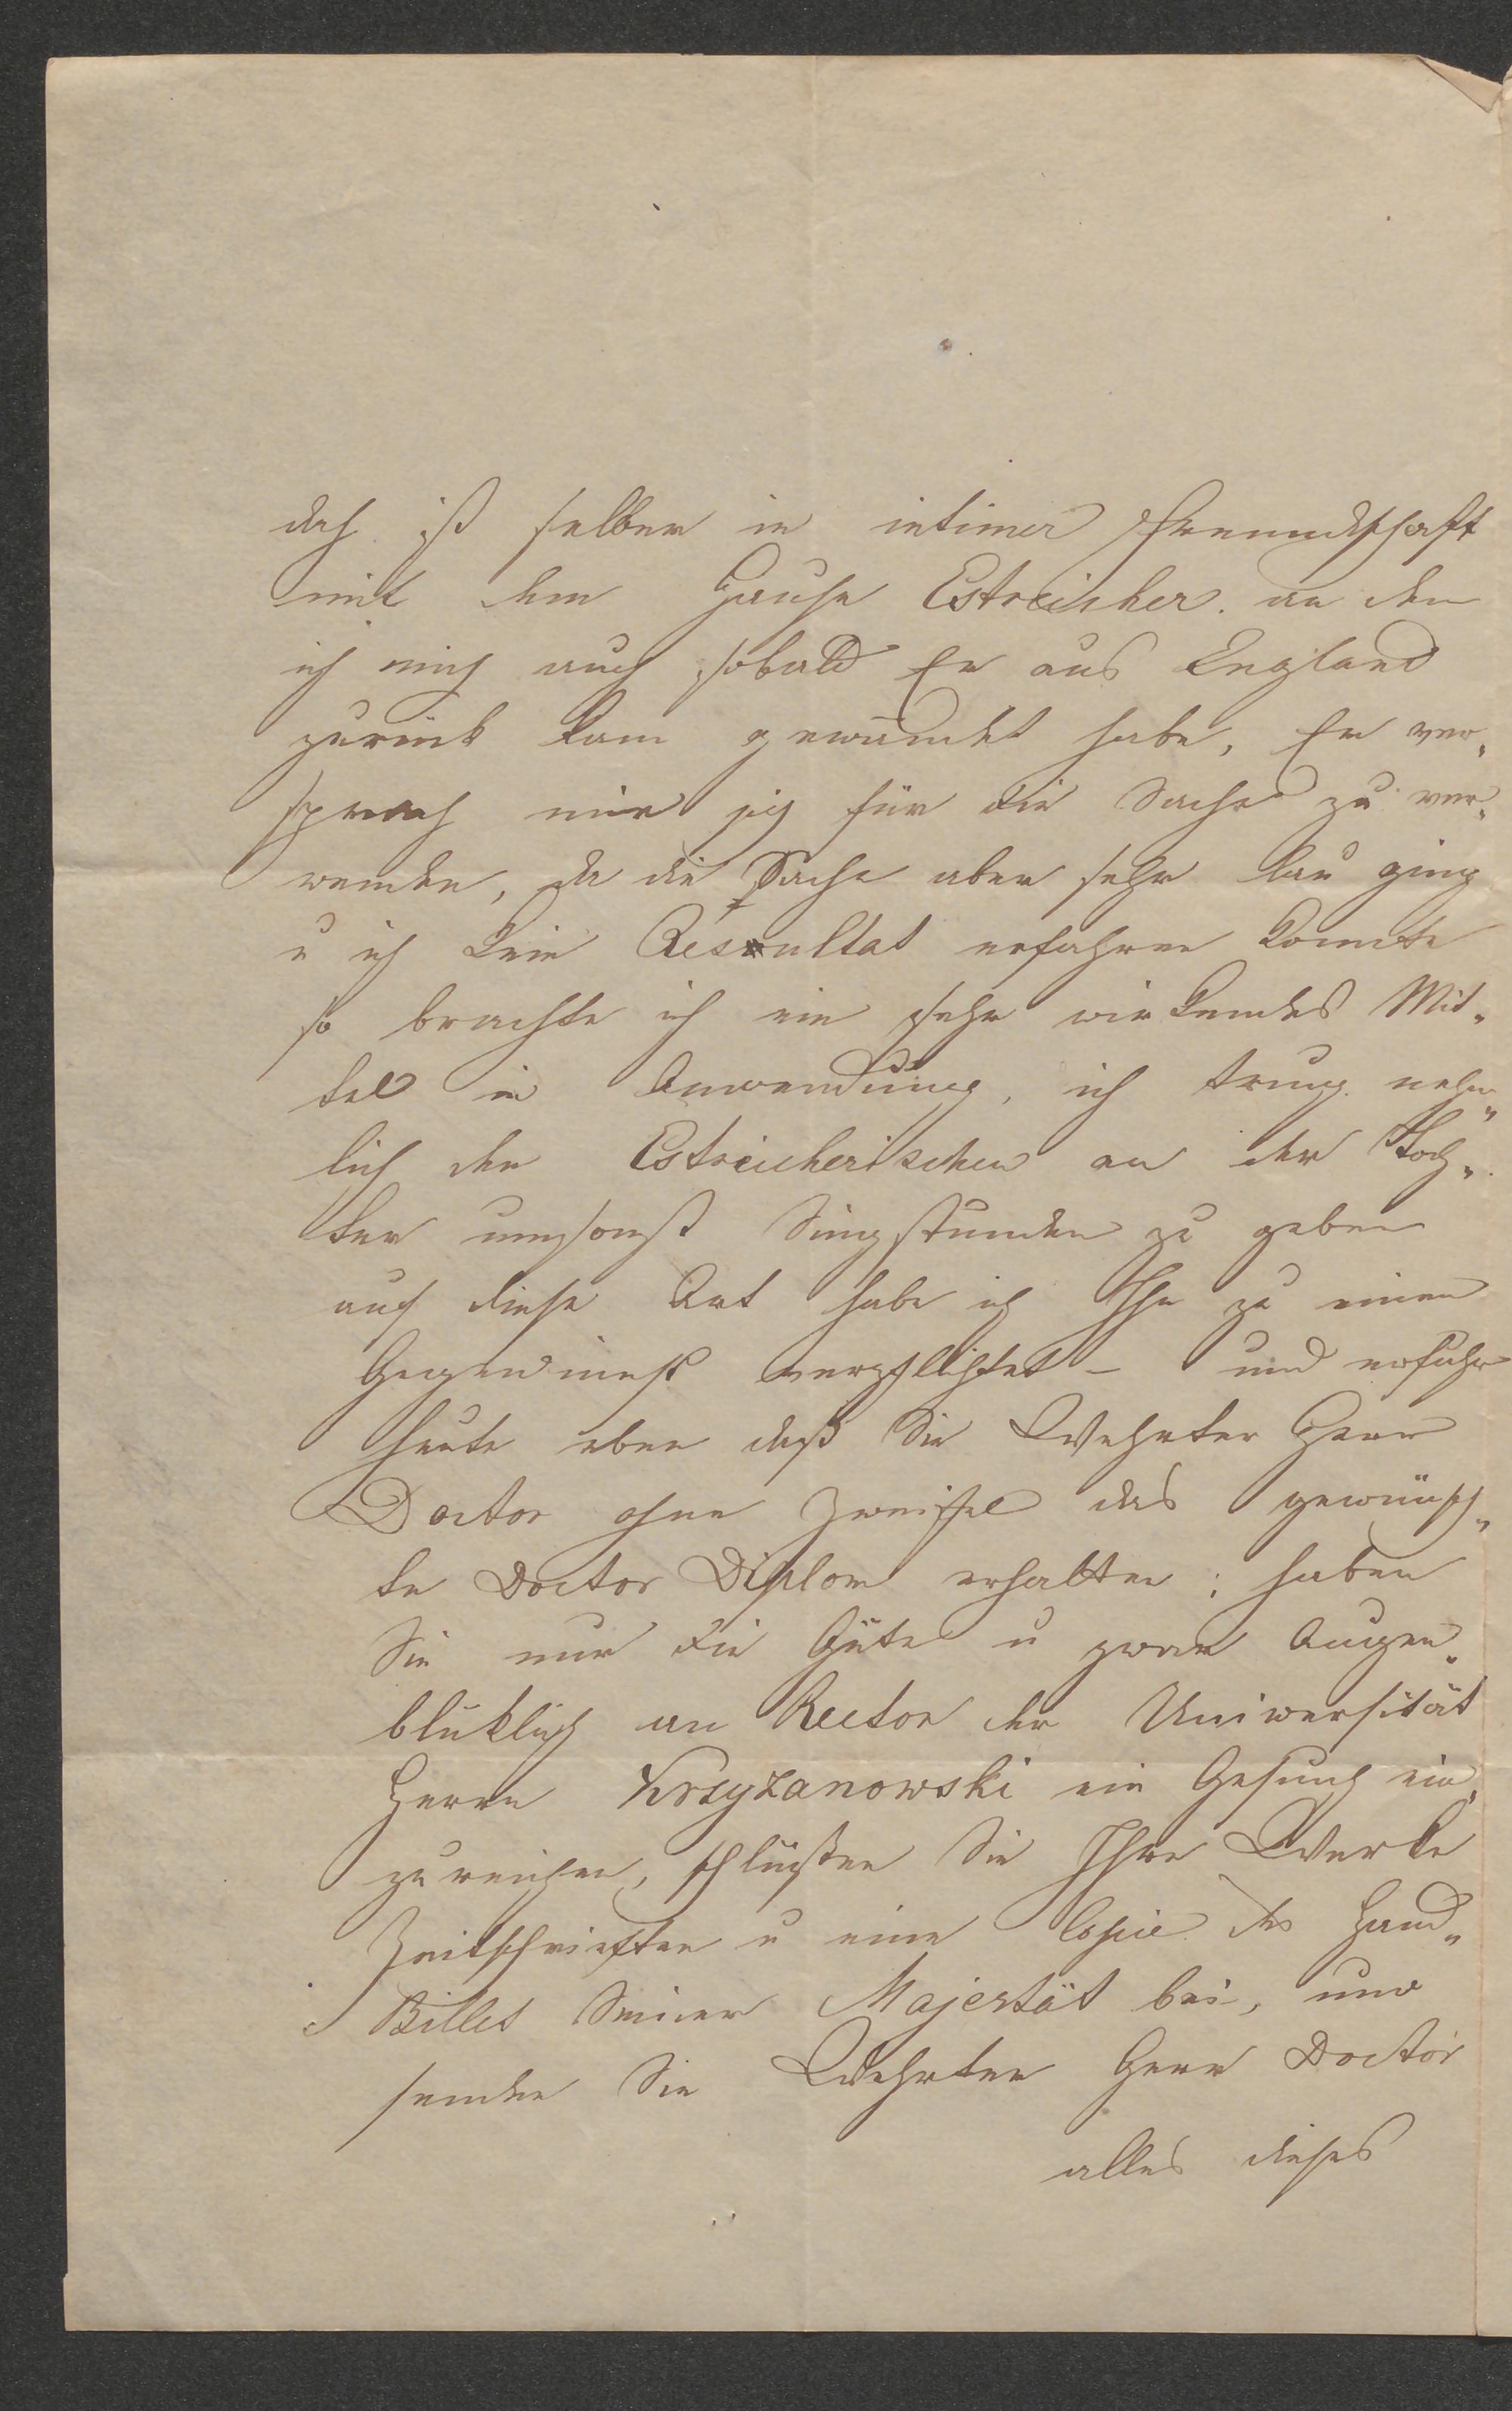 doch ist selber in intimer Freundschaft
mit dem Hause Estreicher. an den
ich mich auch sobald Er aus England
zurück kam gewendet habe, Er ver„
sprach mir sich für die Sache zu ver„
wenden, da die Sache aber sehr lau ging
u ich kein Resultat erfahren konnte
so brachte ich ein sehr wirkendes Mit„
tel in Anwendung, ich trug nehm„
lich den Estreicherischen an der Toch„
ter umsonst Singstunden zu geben
auf diese Art habe ich Ihn zu einen
Gegendinst verpflichtet – und erfuhr
heute eben daß Sie Wehrter Herr
Doctor ohne Zweifel das gewünsch„
te Doctor Diplom erhalten; haben
Sie nur die Güte u zwar Augen„
bliklich an Rector der Uniwersität
Herrn Krzyżanowski ein Gesuch ein„
zureichen, schlüßen Sie Ihre Werke
Zeitschrieften u eine Copie des Hand„
Billet Seiner Majestät bei, und
senden Sie Wehrter Herr Doctor
alles dieses